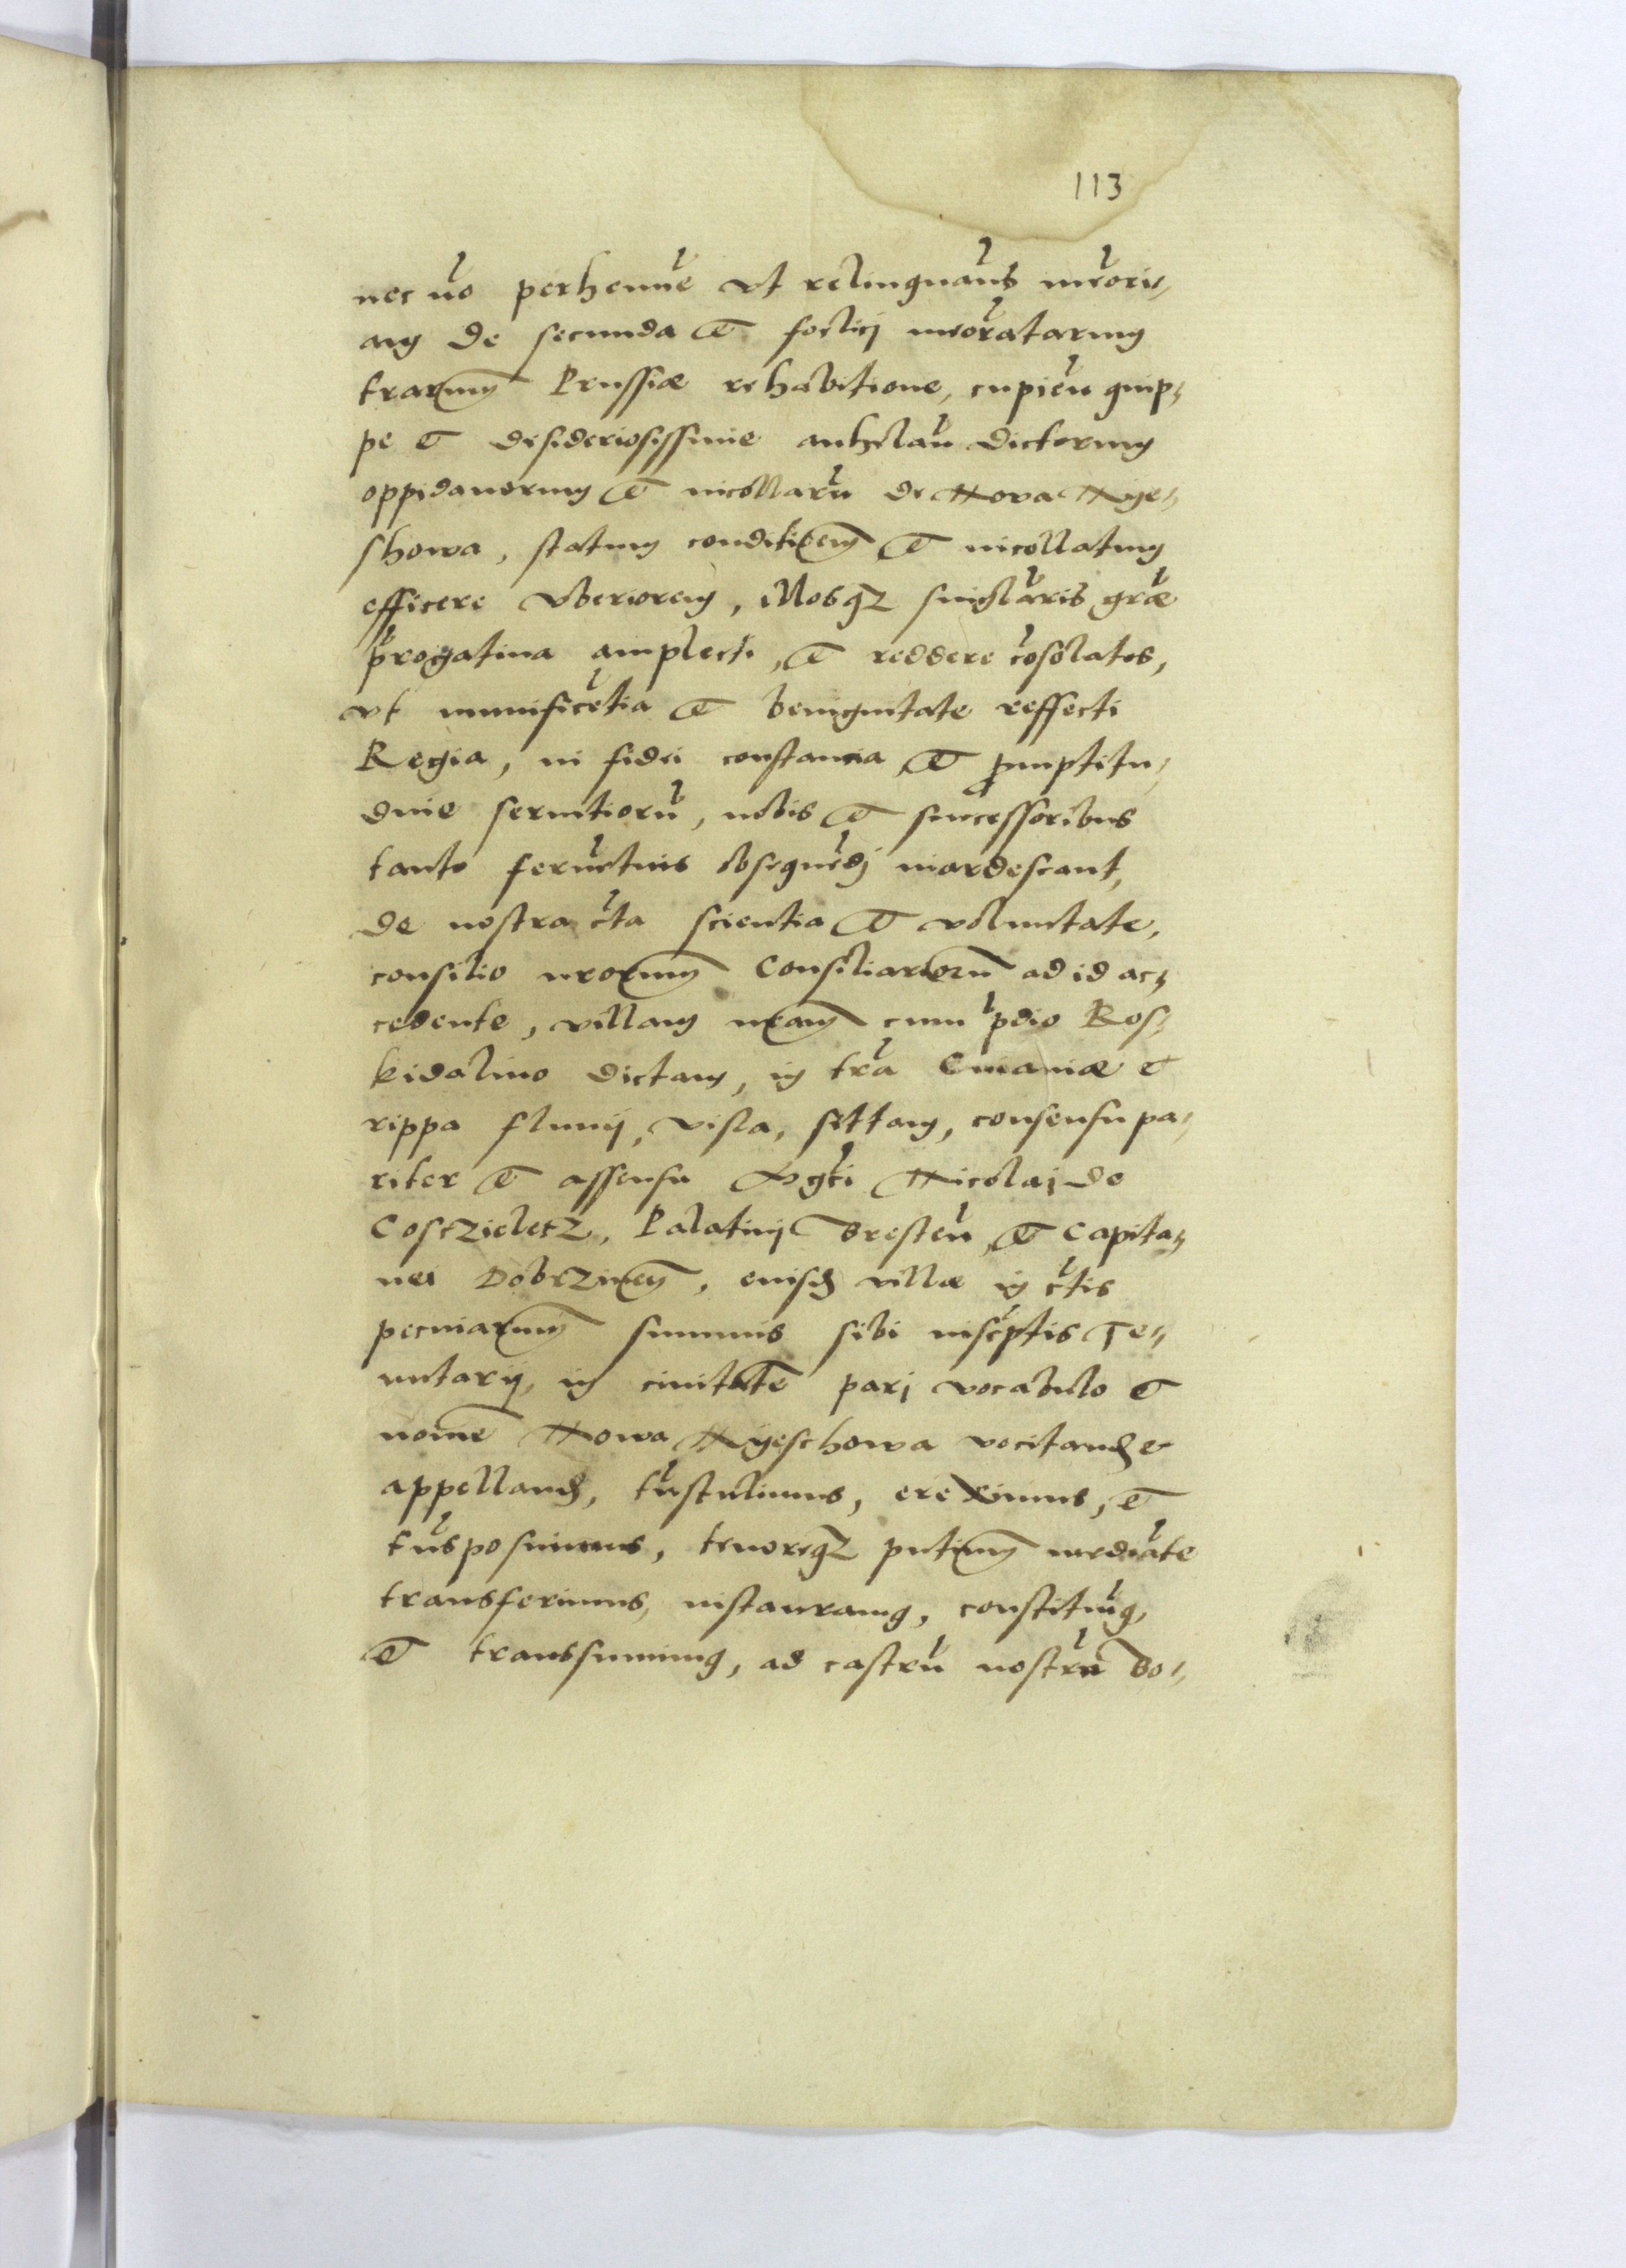 113
nec nō perhenne vt relinquam̄s mēori-
am de secunda et foelicj mēoratarum
trarum Prussiæ rehabitione, cupien̄ quip-
pe et desideriosissime anhelan̄ dictorum
oppidanorum et incollarū de Nova Nye-
showa, statum conditionem et incollatum
efficere vberiorem, illosqz singlāris grāe
prōgatiua amplecti, et reddere cōsolatos,
vt munificētia et benignitate reffecti
Regia, in fidei constancia et promptitu-
dine seruitiorū, nobis et successoribus
tanto feruētius obsequēdj inardescant,
de nostra c̄ta scientia et voluntate,
consilio nrorum Consiliariorum ad id ac-
cedente, villam nram cum p̄dio Ros-
kidalino dictam, in tra Cuiaviæ et
rippa fluuij, visla, sittam, consensu pa-
riter et assensu Mgci Nicolaj de
Cosczieletz, Palatinj Bresten̄ et Capita-
nei Dobrzinen, eiusd villæ in c̄tis
pecuniarum summis sibi inscptis Te-
nutarij, in ciuitatē parj vocabulo et
nomine Nowa Nyeschowa vocitand et
appelland, tn̄stulimus, ereximus, et
tn̄sposuimus, tenoreqz pntium mediāte
transferimus, instauramus, constituim̄,
et transsumimus, ad castrū nostrū Bo-